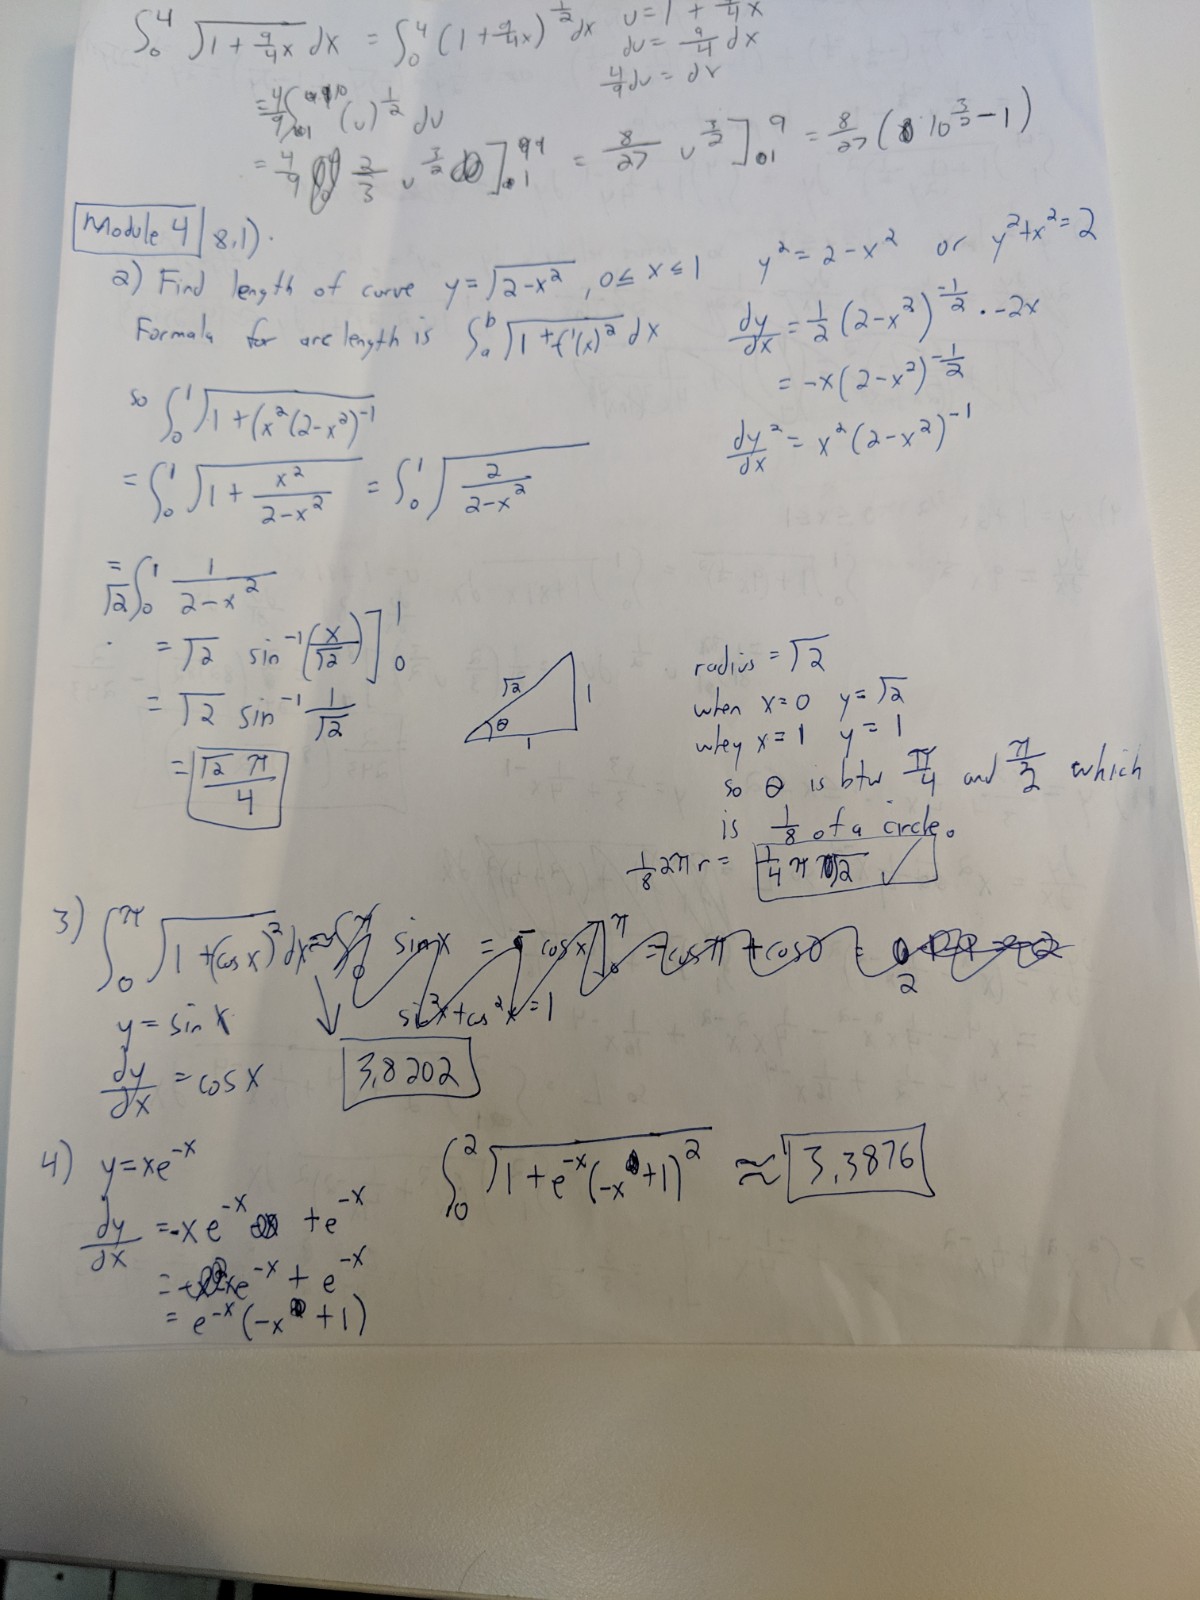 ∫₀⁴ √(1 + 9/4 x) dx = ∫₀⁴ (1 + 9/4 x)^(1/2) dx   u = 1 + 9/4 x
du = 9/4 dx
4/9 du = dx
= 4/9 ∫₁¹⁰ (u)^(1/2) du
= 4/9 2/3 u^(3/2) ]₁ = 8/27 u^(3/2) ]₁⁹ = 8/27 (10^(3/2) - 1)
Module 4 8.1).
2) Find length of curve y = √(2-x²), 0 ≤ x ≤ 1   y² = 2 - x² or y² + x² = 2
Formala for arc length is ∫ₐᵇ √(1 + f'(x)²) dx   dy/dx = 1/2 (2-x²)^(-1/2) · -2x
= -x(2-x²)^(-1/2)
so ∫₀¹ √(1 + (x²(2-x²)⁻¹   dy/dx² = x²(2-x²)⁻¹
= ∫₀¹ √(1 + x²/(2-x²)) = ∫₀¹ √(2/(2-x²))
= √2 ∫₀¹ 1/(2-x²)
= √2 sin⁻¹(x/√2) ]₀¹
= √2 sin⁻¹ 1/√2
= √2 π/4
√2 1
θ
1
radius = √2
when x = 0 y = √2
when x = 1 y = 1
so θ is btw π/4 and π/2 which
is 1/8 of a circle.
1/8 2πr = 1/4 π √2 ✓
3) ∫₀^π √(1 + (cos x)²) dx ≈ ∫₀^π sin x = - cos x ]₀^π = -cos π + cos 0 = 2
y = sin x   sin²x + cos²x = 1
dy/dx = cos x   3.8202
4) y = xe^(-x)   ∫₀² √(1 + e^(-x)(-x + 1)²) ≈ 3.3876
dy/dx = -xe^(-x) + e^(-x)
= xe^(-x) + e^(-x)
= e^(-x)(-x + 1)